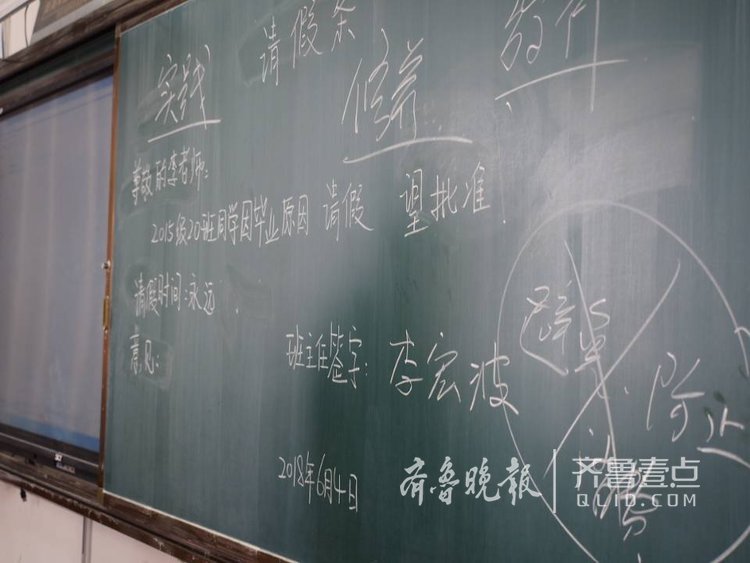 请假条
实践
修养
尊敬的李老师:
2015级20班同学因毕业原因 请假 望批准.
请假时间:永远
意见:
班主任签字: 李宏波
2018年6月4日
齐鲁晚报 齐鲁壹点
QLID.COM